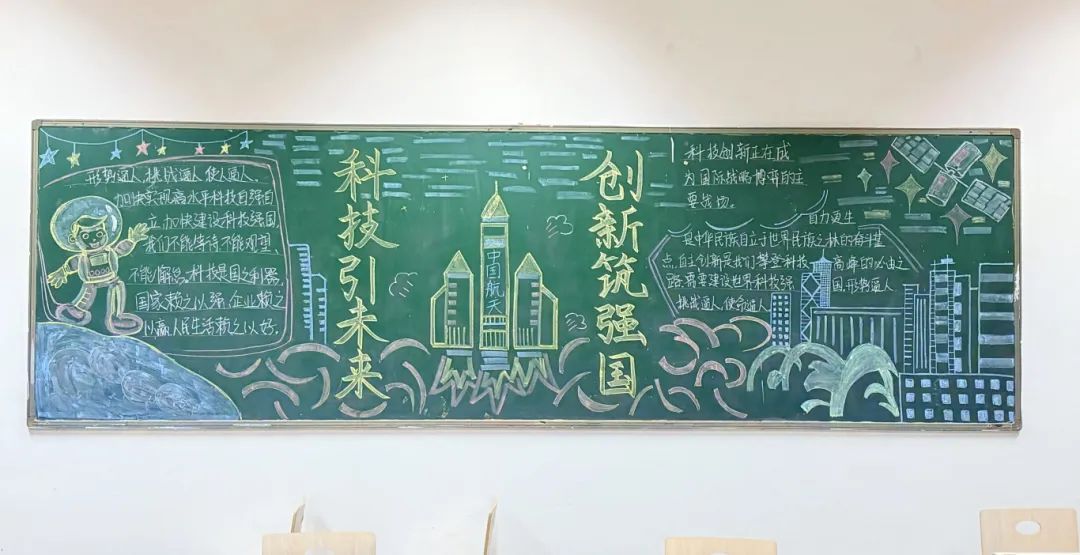 形势逼人,挑战逼人,使命逼人、
加快实现高水平科技自强自
立,加快建设科技强国,
我们不能等待,不能观望、
不能懈怠,科技是国之利器,
国家赖之以强,企业赖之
以赢,人民生活赖之以好.
科技引未来
中国航天
创新筑强国
科技创新正在成
为国际战略博弈的主
要战场。
自力更生
是中华民族自立于世界民族之林的奋斗基
点,自主创新是我们攀登科技 高峰的必由之
路.需要建设世界科技强 国,形势逼人
挑战逼人,使命逼人